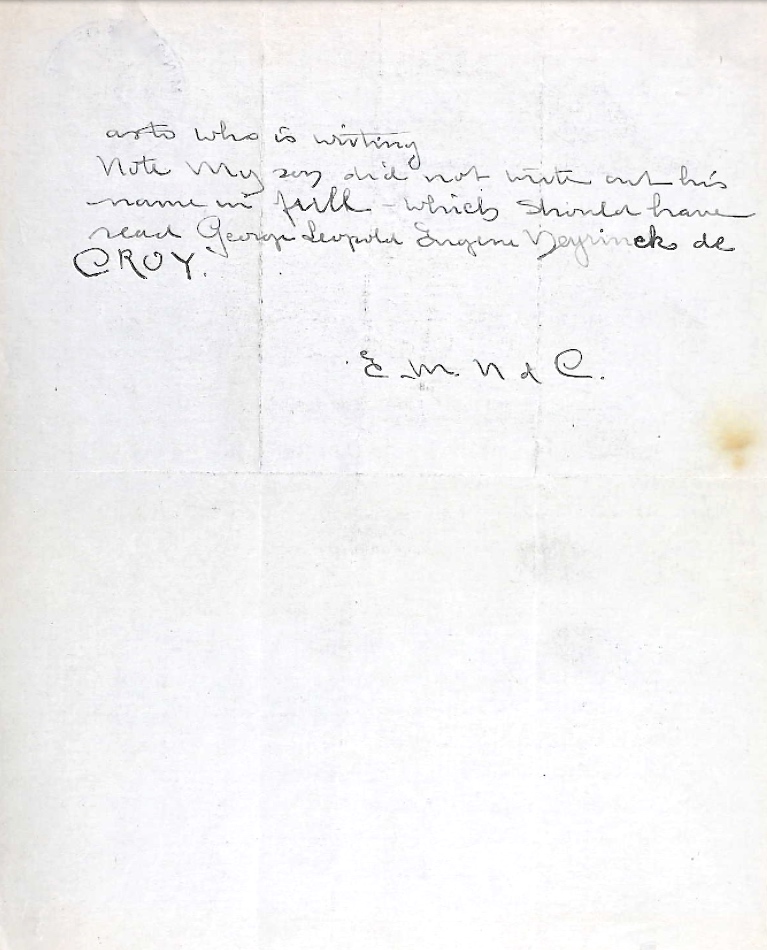 as to who is writing
Note My son did not write out his
name in full - which should have
read George Leopold Eugene Neyrinck de
CROY.
E. M. N d C.